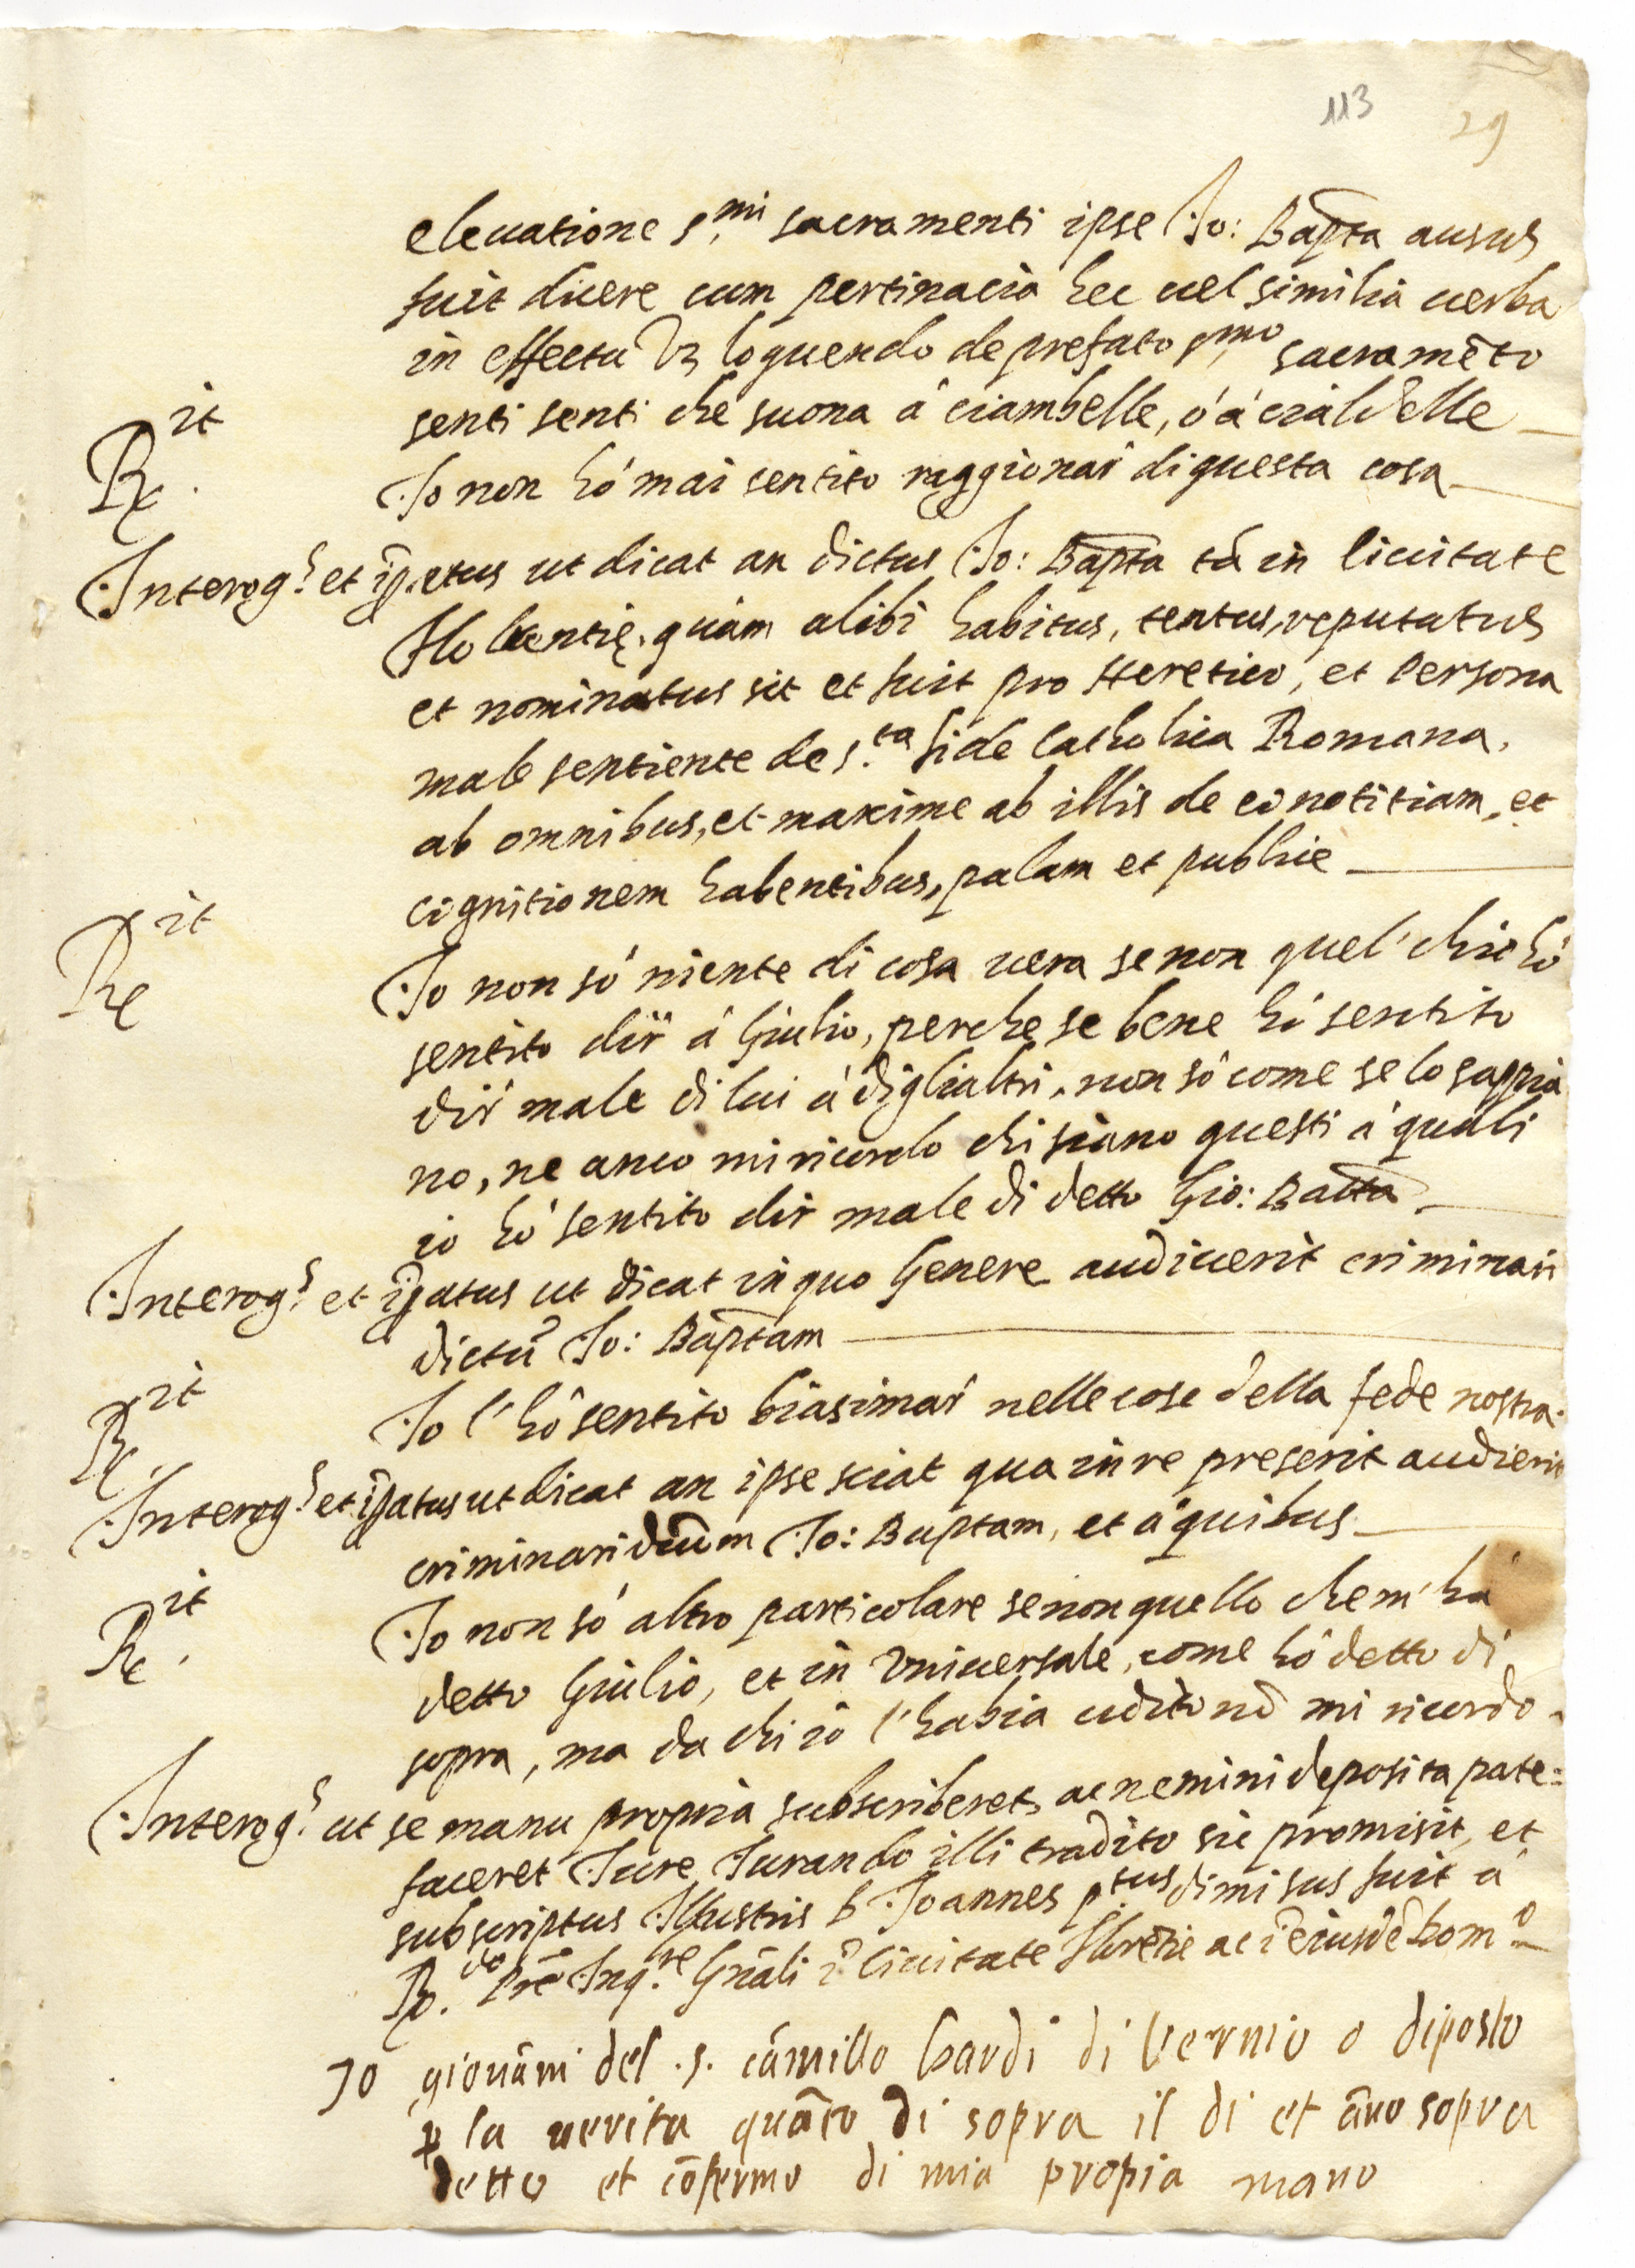 113 29
eleuatione s.mi sacramenti ipse Jo: Bapta ausus
fuit dicere cum pertinacia hec uel similia uerba
in effectu Vz loquendo de prefato s.mo sacramẽto
senti senti che suona á ciambelle, ó á cialdelle
Rit Jo non hó mai sentito raggionar di questa cosa
Interog.s et ip̃etus ut dicat an dictus Jo: Bapta tã in Ciuitate
Florentię, quàm alibi habitus, tentus, reputatus
et nominatus sit et fuit pro Heretico, et Persona
male sentiente de s.ta fide Catholica Romana,
ab omnibus, et maxime ab illis de eo notitiam, et
cognitionem habentibus, palam et publice
Rit Jo non só niente di cosa uera se non quel' ch'io hó
sentito dir á Giulio, perche se bene hó sentito
dir male di lui á digli altri, non só come se lo sappia
no, ne anco mi ricordo chi siano questi á quali
io hó sentito dir male di detto Gio: Batta
Interog.s et ip̃atus ut dicat in quo Genere audiuerit criminari
dictũ Jo: Baptam
Rit Jo l'hó sentito biasimar nelle cose della fede nostra.
Interog.s et ip̃atus ut dicat an ipse sciat qua in re preserit audierit
criminari dictum Jo: Baptam, et á quibus
Rit Jo non só altro particolare se non quello che m'há
detto Giulio, et in Vniuersale, come hó detto di
sopra, ma da chi io l'habia udito nõ mi ricordo.
Interog.s ut se manu propria subscriberet, ac nemini deposita pate=
faceret Jure Jurando illi tradito sic promisit, et
subscriptus Illustris D Joannes p.tus dimisus fuit á
R.do Prẽ Inq.re Gñali ĩ Ciuitate Florẽtie ac ĩ eiusdẽ Dom.o
Jo giouãni del .s. cãmillo bardi di Vernio o diposto
p la uerita quãto di sopra il di et ãno sopra
detto et cõfermo di mia propia mano